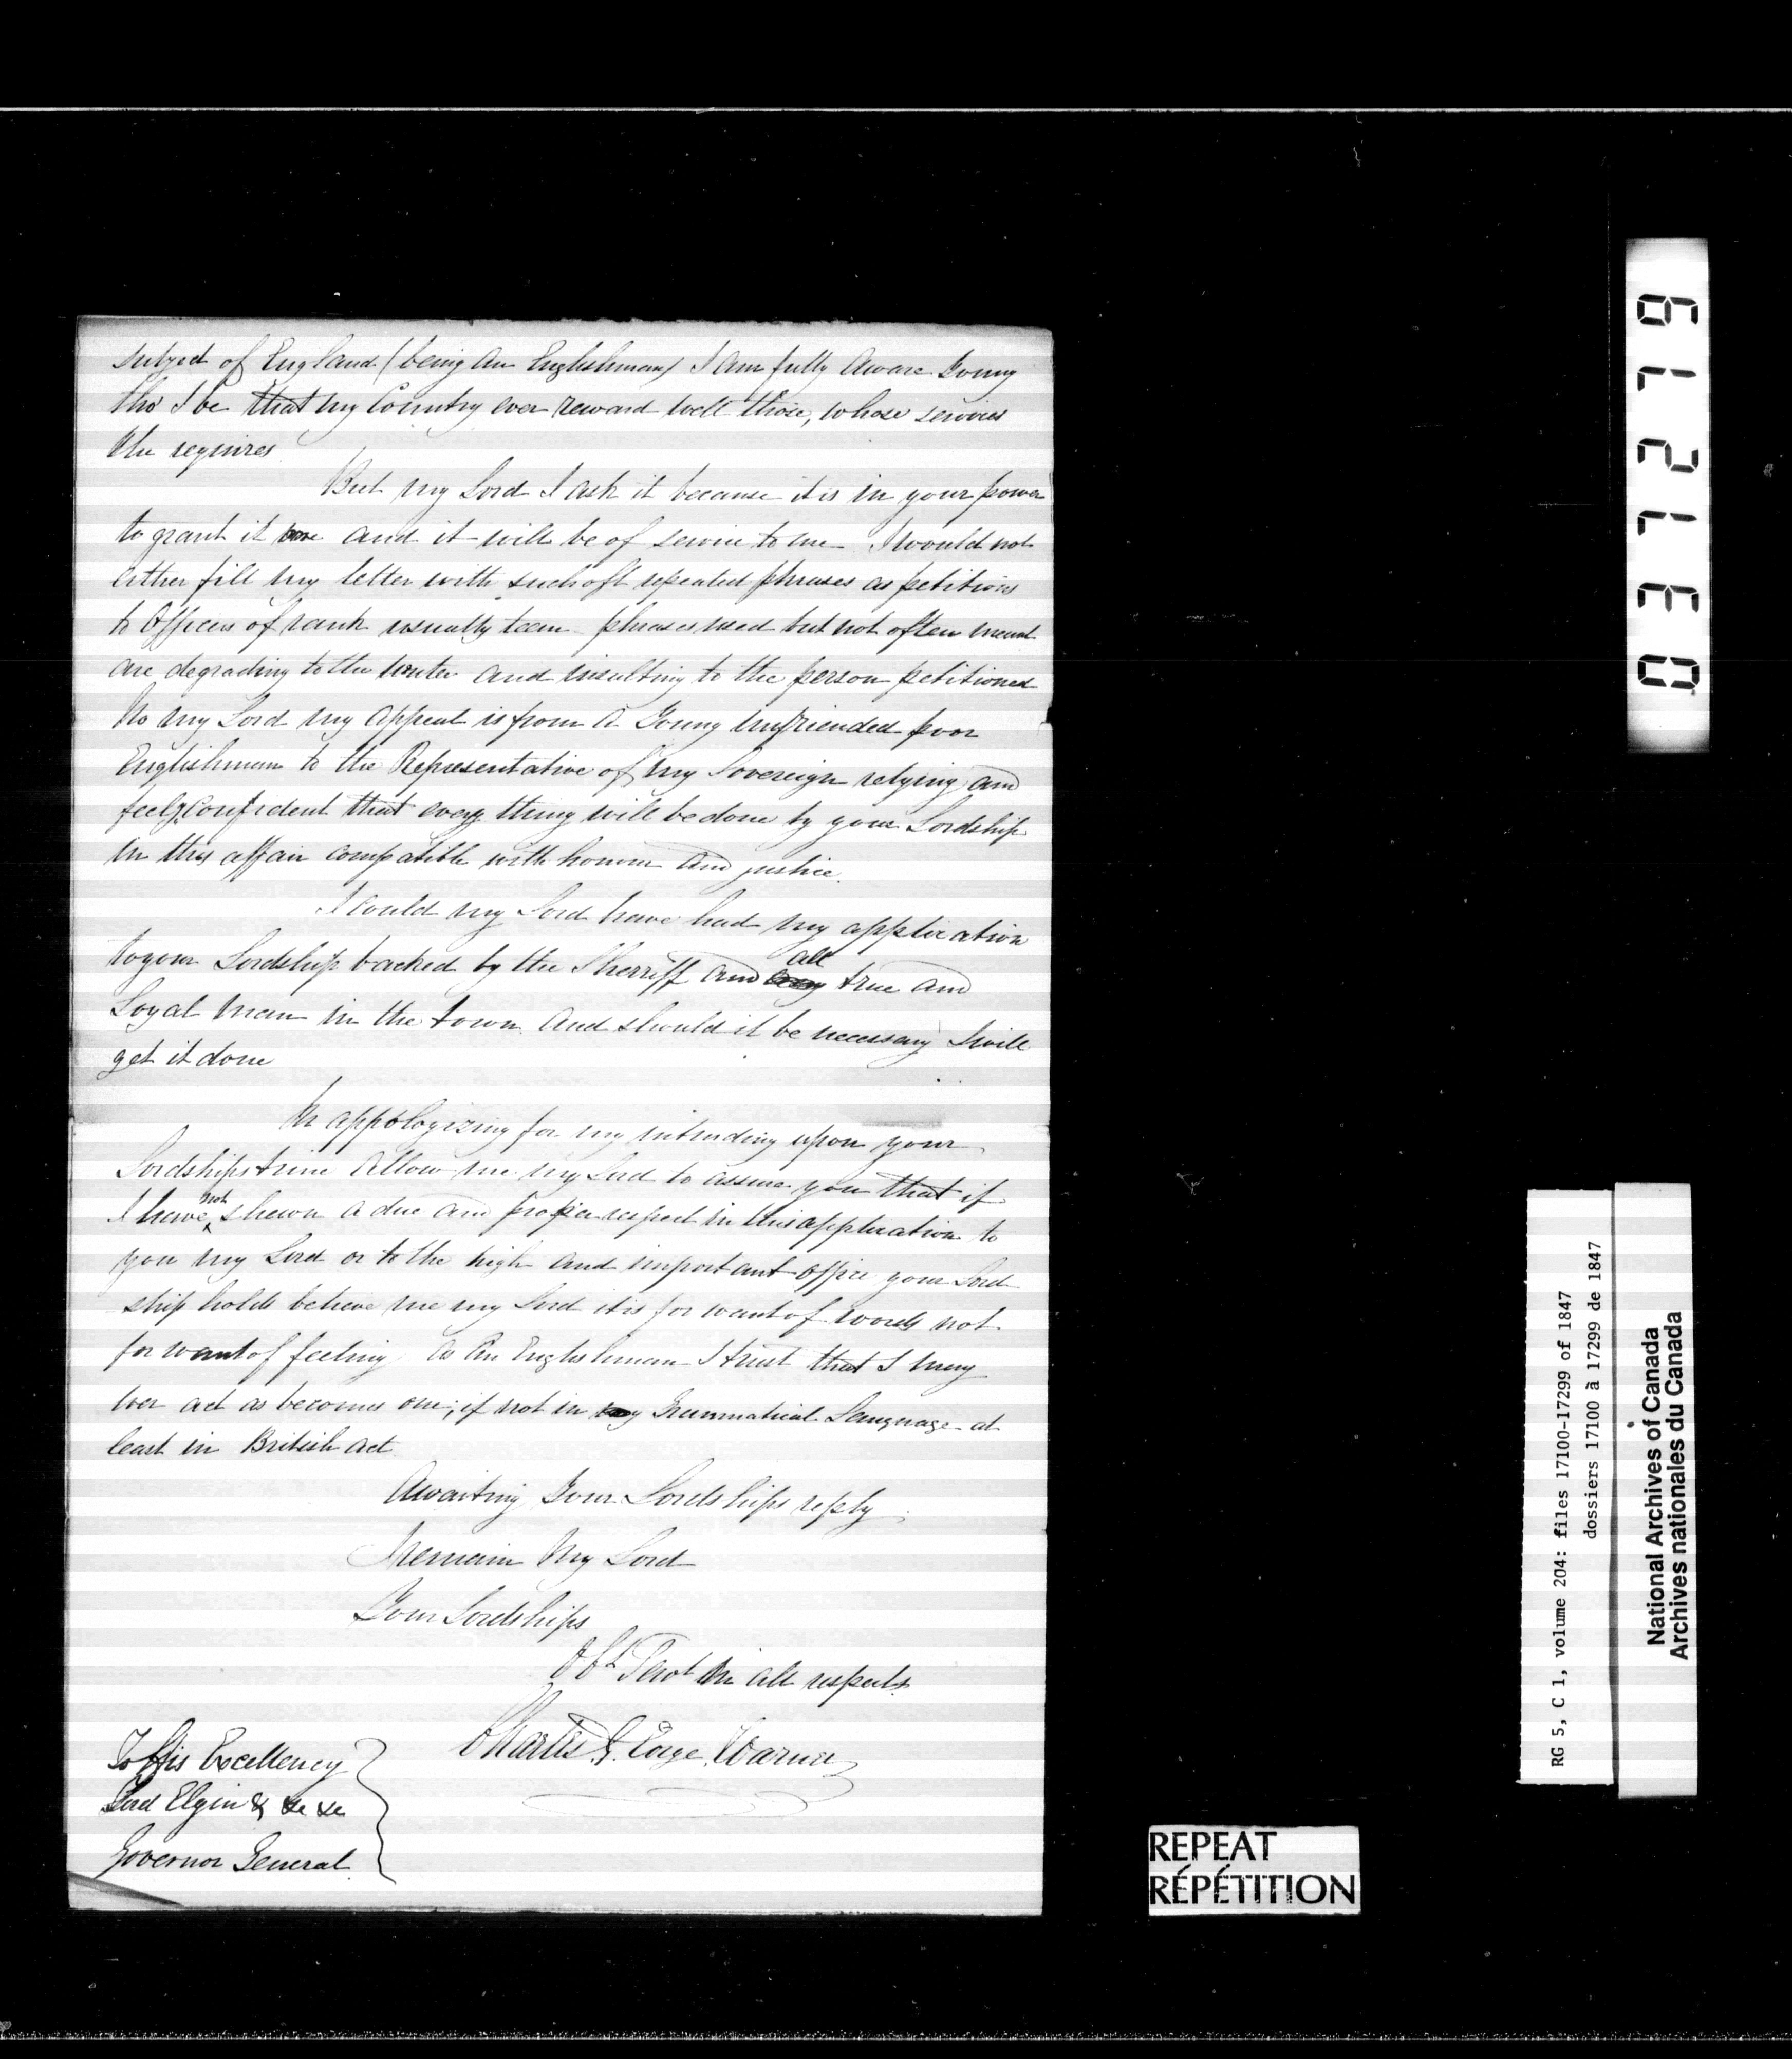 subject of England (being an Englishman) I am fully aware young
tho' I be that my Country ever reward well those, whose services
she requires
But my Lord I ask it because it is in your power
to grant it and it will be of service to me I would not
either fill my letter with such oft repeated phrases as petitions
to Officers of rank usually teem phrases used but not often meant
are degrading to the writer and insulting to the person petitioned
No my Lord my appeal is from a Young unfriended poor
Englishman to the Representative of my Sovereign relying and
feelg confident that every thing will be done by your Lordship
in this affair compatible with honour and justice.
I could my Lord have had my application
to your Lordship backed by the Sherriff and all true and
Loyal men in the town and should it be necessary I will
get it done
In appologizing for my intruding upon your
Lordships time allow me my Lord to assure you that if
I have not shewn a due and proper respect in this application to
you my Lord or to the high and important office your Lord
ship holds believe me my Lord it is for want of words not
for want of feeling as an Englishman I trust that I may
ever act as becomes one; if not in Grammatical Language at
least in British act
Awaiting Your Lordships reply
I remain My Lord
Your Lordships
Obt Servt in all respects
Charles George Warner
To His Excellency
Lord Elgin & &c &c
Governor General
REPEAT
RÉPÉTITION
037279
RG 5, C 1, volume 204: files 17100-17299 of 1847
dossiers 17100 à 17299 de 1847
National Archives of Canada
Archives nationales du Canada